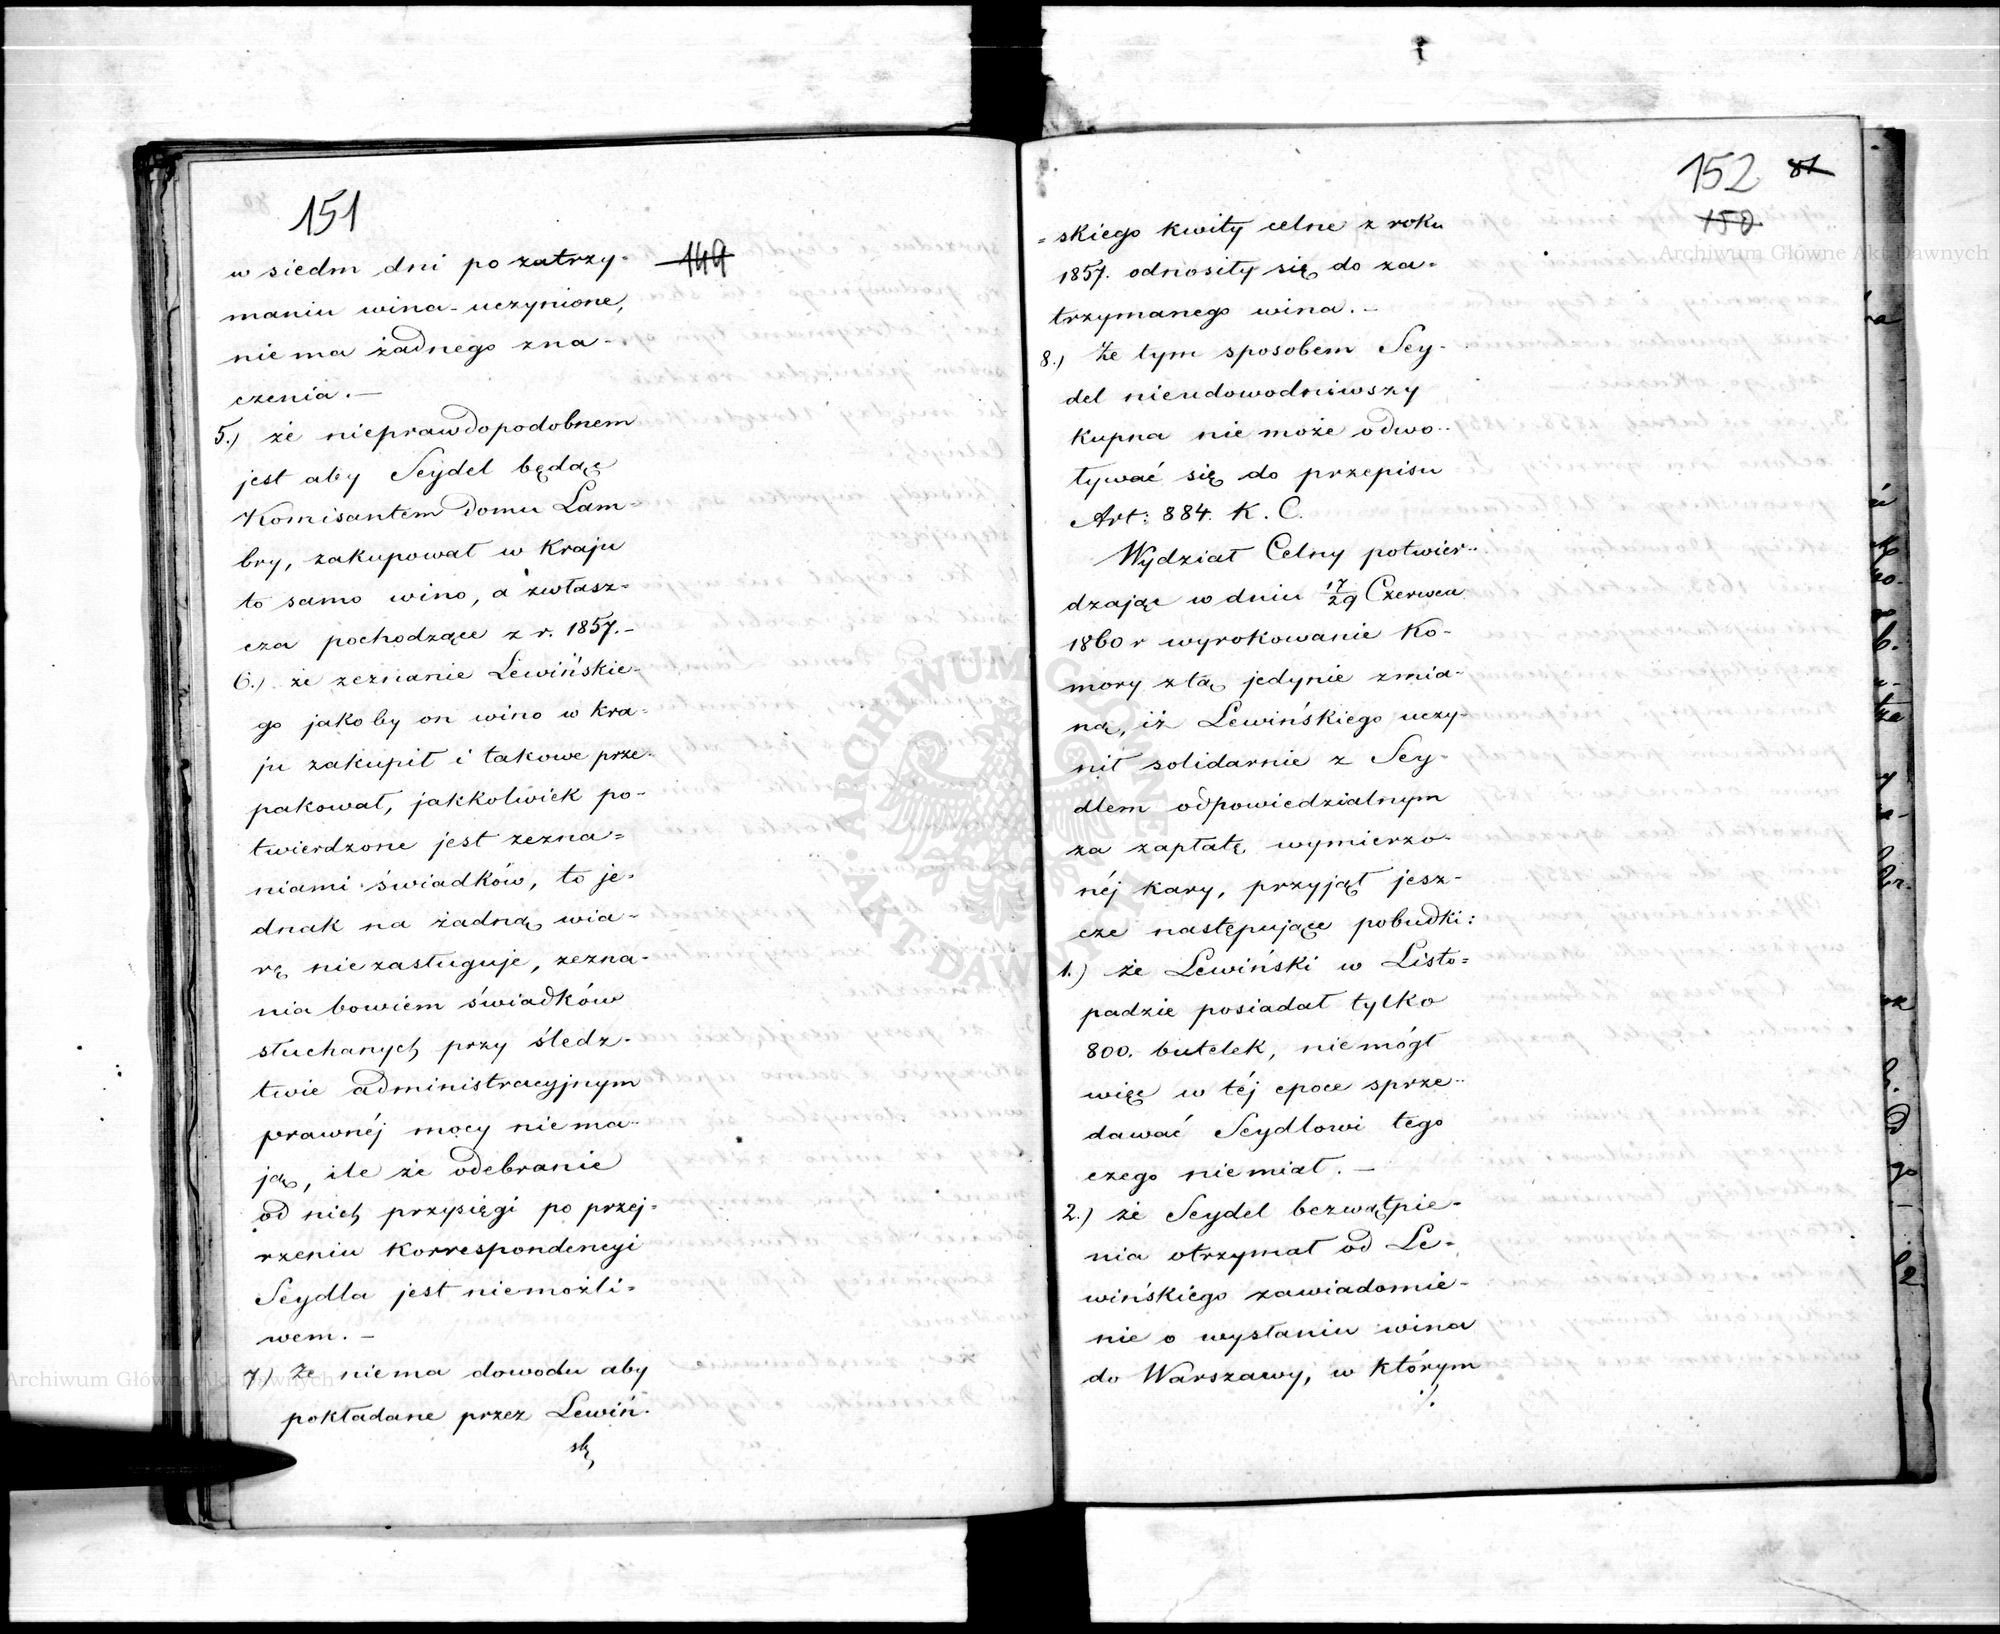 151
149
w siedm dni po zatrzy-
maniu wina uczynione,
nie ma żadnego zna-
czenia. –
5.) że nieprawdopodobnem
jest aby Seydel będąc
Komisantem domu Lam-
bry, zakupował w kraju
to samo wino, a zwłasz-
cza pochodzące z r. 1857. –
6.) że zeznanie Lewińskie-
go jakoby on wino w kra-
ju zakupił i takowe prze-
pakował, jakkolwiek po-
twierdzone jest zezna=
niami świadków, to je-
dnak na żadną wia-
rę nie zasługuje, zezna-
nia bowiem świadków
słuchanych przy śledz-
twie administracyjnym
prawnéj mocy nie ma-
ją, ile że odebranie
od nich przysięgi po przej-
rzeniu korrespondencyi
Seydla jest niemożli=
wem. –
7.) Że niema dowodu aby
pokładane przez Lewiń-
152 81
150
=skiego kwity celne z roku
1857. odnosiły się do za-
trzymanego wina. –
8.) Że tym sposobem Sey-
del nieudowodniwszy
kupna nie może odwo-
ływać się do przepisu
Art: 884. K. C.
Wydział Celny potwier-
dzając w dniu 17/29 Czerwca
1860 r wyrokowanie Ko-
mory z tą jedynie zmia-
ną, iż Lewińskiego uczy-
nił solidarnie z Sey-
dlem odpowiedzialnym
za zapłatę wymierzo-
néj kary, przyjął jesz-
cze następujące pobudki:
1.) że Lewiński w Listo=
padzie posiadał tylko
800. butelek, nie mógł
więc w téj epoce sprze-
dawać Seydlowi tego
czego nie miał. –
2.) że Seydel bezwątpie-
nia otrzymał od Le-
wińskiego zawiadomie-
nie o wysłaniu wina
do Warszawy, w którym
./.
Archiwum Główne Akt Dawnych
Archiwum Główne Akt Dawnych
ARCHIWUM GŁÓWNE AKT DAWNYCH